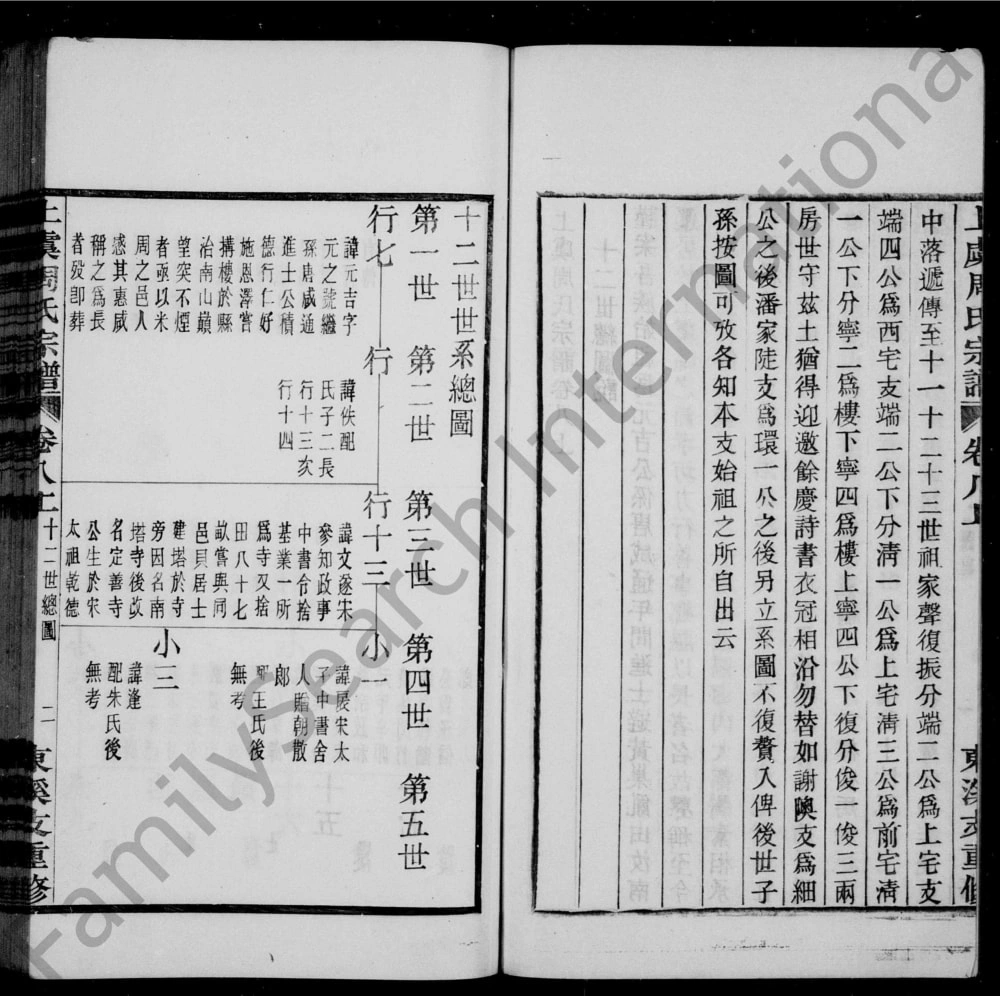 上虞周氏宗譜 卷八上 東溪支重修
中落遞傳至十一十二十三世祖家聲復振分端二公爲上宅支
端四公爲西宅支端二公下分淸一公爲上宅淸三公爲前宅淸
一公下分寧二爲樓下寧四爲樓上寧四公下復分俊一俊三兩
房世守茲土猶得迎邀餘慶詩書衣冠相沿勿替如謝隩支爲細
公之後潘家陡支爲環一公之後另立系圖不復贅入俾後世子
孫按圖可攷各知本支始祖之所自出云
十二世世系總圖
第一世 第二世 第三世 第四世 第五世
行七
諱元吉字
元之號繼
孫唐咸通
進士公積
德行仁好
施恩澤嘗
構樓於縣
治南山巔
望突不煙
者亟以米
周之邑人
感其惠咸
稱之爲長
者歿卽葬
行
諱佚配
氏子二長
行十三次
行十四
行十三
諱文遂宋
參知政事
中書令捨
基業一所
爲寺又捨
田八十七
畝嘗與同
邑貝居士
建塔於寺
旁因名南
塔寺後改
名定善寺
公生於宋
太祖乾德
小一
諱戾宋太
子中書舍
人贈朝散
郞
配王氏後
無考
小三
諱逢
配朱氏後
無考
上虞周氏宗譜 卷八上 十二世總圖 二 東溪支重修
FamilySearch International